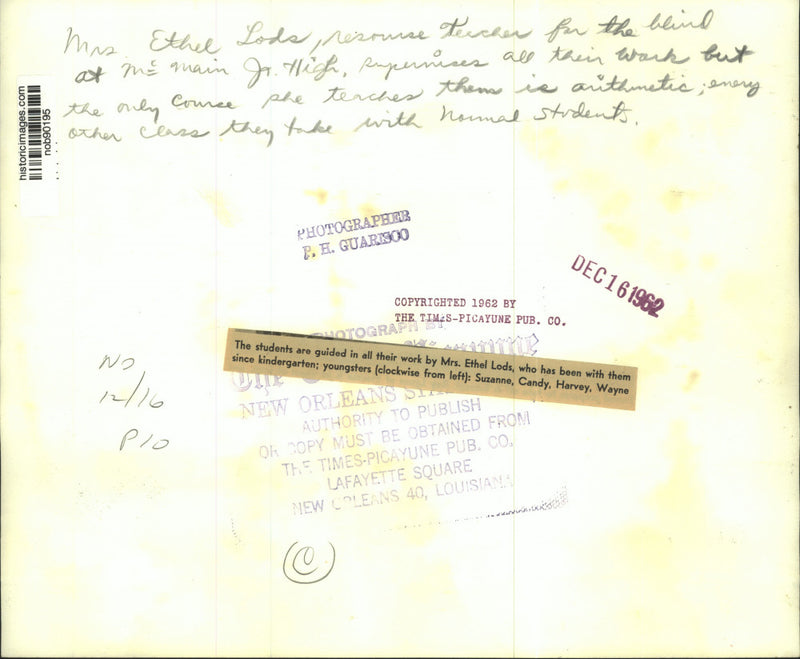 Mrs. Ethel Lods, resourse teacher for the blind
at Mc Main Jr. High, supervises all their work but
the only course she teaches them is arithmetic; every
other class they take with normal students.
historicimages.com
nob90195
PHOTOGRAPHER
P. H. GUARISCO
DEC 16 1962
COPYRIGHTED 1962 BY
THE TIMES-PICAYUNE PUB. CO.
PHOTOGRAPH BY
The
The students are guided in all their work by Mrs. Ethel Lods, who has been with them
since kindergarten; youngsters (clockwise from left): Suzanne, Candy, Harvey, Wayne
NEW ORLEANS
AUTHORITY TO PUBLISH
OR COPY MUST BE OBTAINED FROM
THE TIMES-PICAYUNE PUB. CO.
LAFAYETTE SQUARE
NEW ORLEANS 40, LOUISIANA
ND
12/16
P10
C